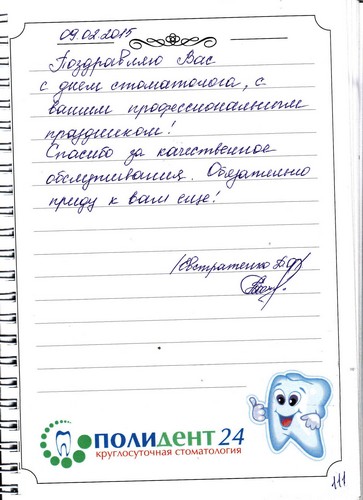 09.02.2015
Поздравляю Вас
с днем стоматолога, с
вашим профессиональным
праздником!
Спасибо за качественное
обслуживания. Обязательно
приду к вам еще!
Евстратенко
ПОЛИДЕНТ 24
круглосуточная стоматология
111